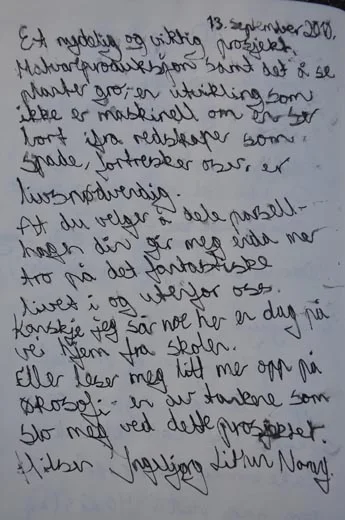 13. september 2010.
Et nydelig og viktig prosjekt.
Matvareproduksjon samt det å se
planter gro, en utvikling som
ikke er maskinell om en ser
bort ifra redskaper som
spade, fortresker osv., er
livsnødvendig.
At du velger å dele parsell-
hagen din gir meg enda mer
tro på det fantastiske
livet i og utenfor oss.
Kanskje jeg sår noe her en dag på
vei hjem fra skolen.
Eller leser meg litt mer opp på
økosofi, - er de tankene som
slo meg ved dette prosjektet.
Hilsen